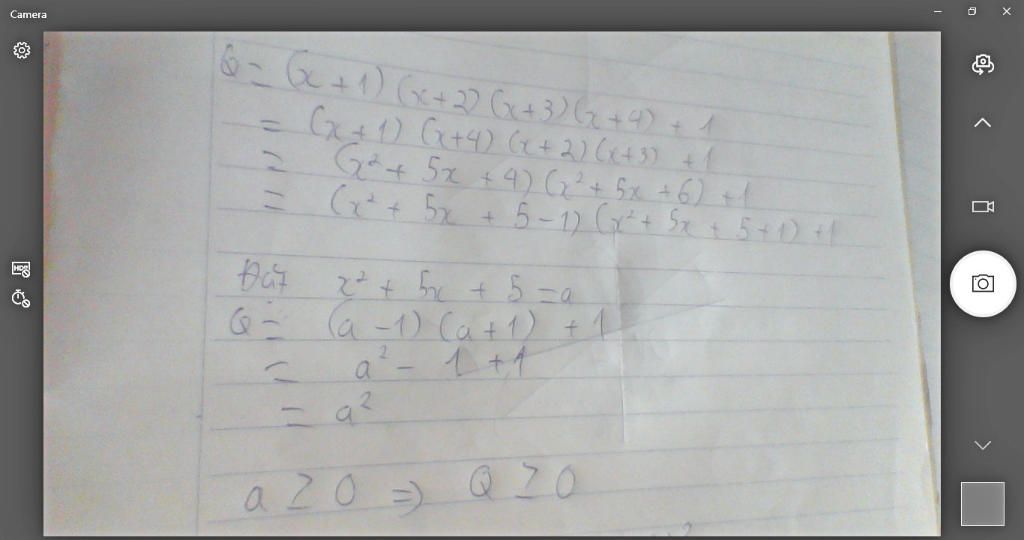 Camera
Q = (x+1) (x+2) (x+3) (x+4) + 1
= (x+1) (x+4) (x+2) (x+3) +1
= (x² + 5x + 4) (x² + 5x + 6) +1
= (x² + 5x + 5-1) (x² + 5x + 5+1) +1
Đặt x² + 5x + 5 = a
Q = (a -1) (a+1) + 1
= a² - 1 +1
= a²
a ≥ 0 => Q ≥ 0
HDR